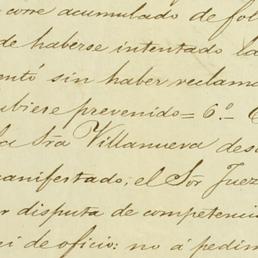 corre acumulado de fol
de haberse intentado la
entó sin haber reclama
ubiere prevenido = 6.º -
la Sra Villanueva des
manifestado; el Sor Juez
r disputa de competenci
ci de oficio: no á pedim